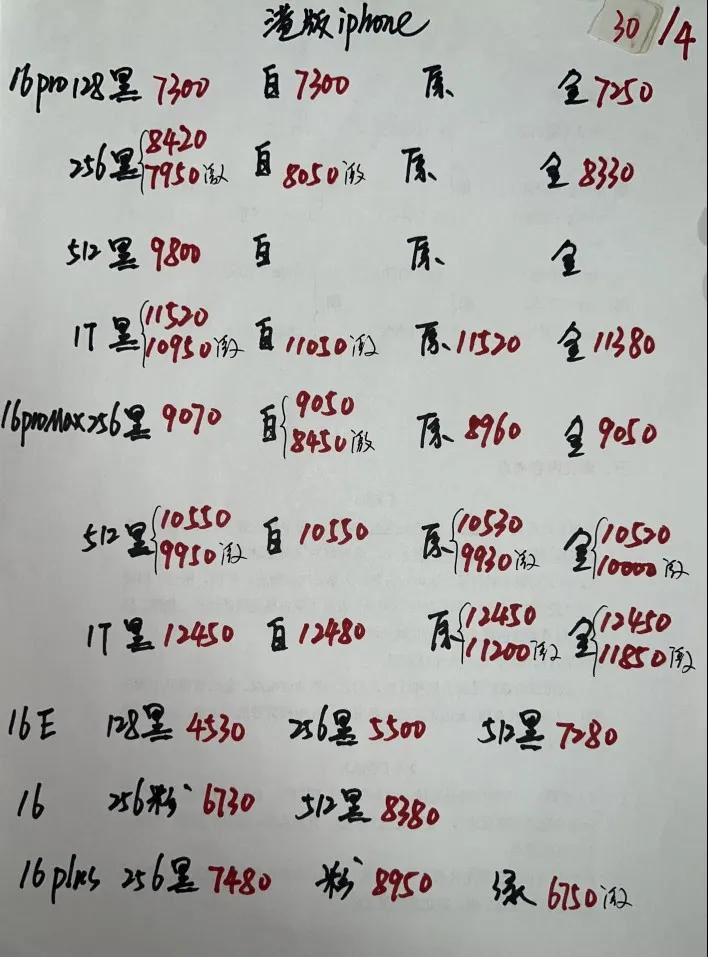 港版iphone 30/4
16pro128黑 7300 白 7300 原 金 7250
256黑 8420 7950激 白 8050激 原 金 8330
512黑 9800 白 原 金
1T 黑 11520 10950激 白 11050激 原 11520 金 11380
16proMax256黑 9070 白 9050 8450激 原 8960 金 9050
512黑 10550 9950激 白 10550 原 10530 9930激 金 10520 10000激
1T 黑 12450 白 12480 原 12450 11200激 金 12450 11850激
16E 128黑 4530 256黑 5500 512黑 7280
16 256粉 6730 512黑 8380
16plus 256黑 7480 粉 8950 绿 6750激